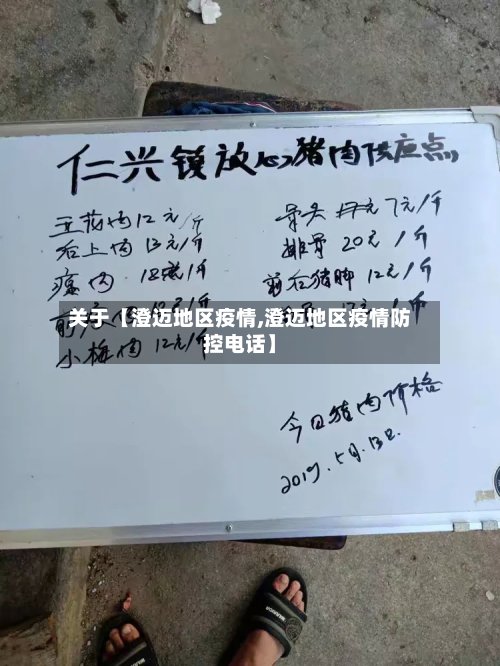 仁兴镇放心猪肉供应点
五花肉12元/斤
骨头 7元/斤
后上肉13元/斤
排骨 20元/斤
瘦肉
前后猪脚 12元/斤
关于【澄迈地区疫情,澄迈地区疫情防
控电话】
小梅肉 12元/斤
今日猪肉价格
2019.5月.13日.